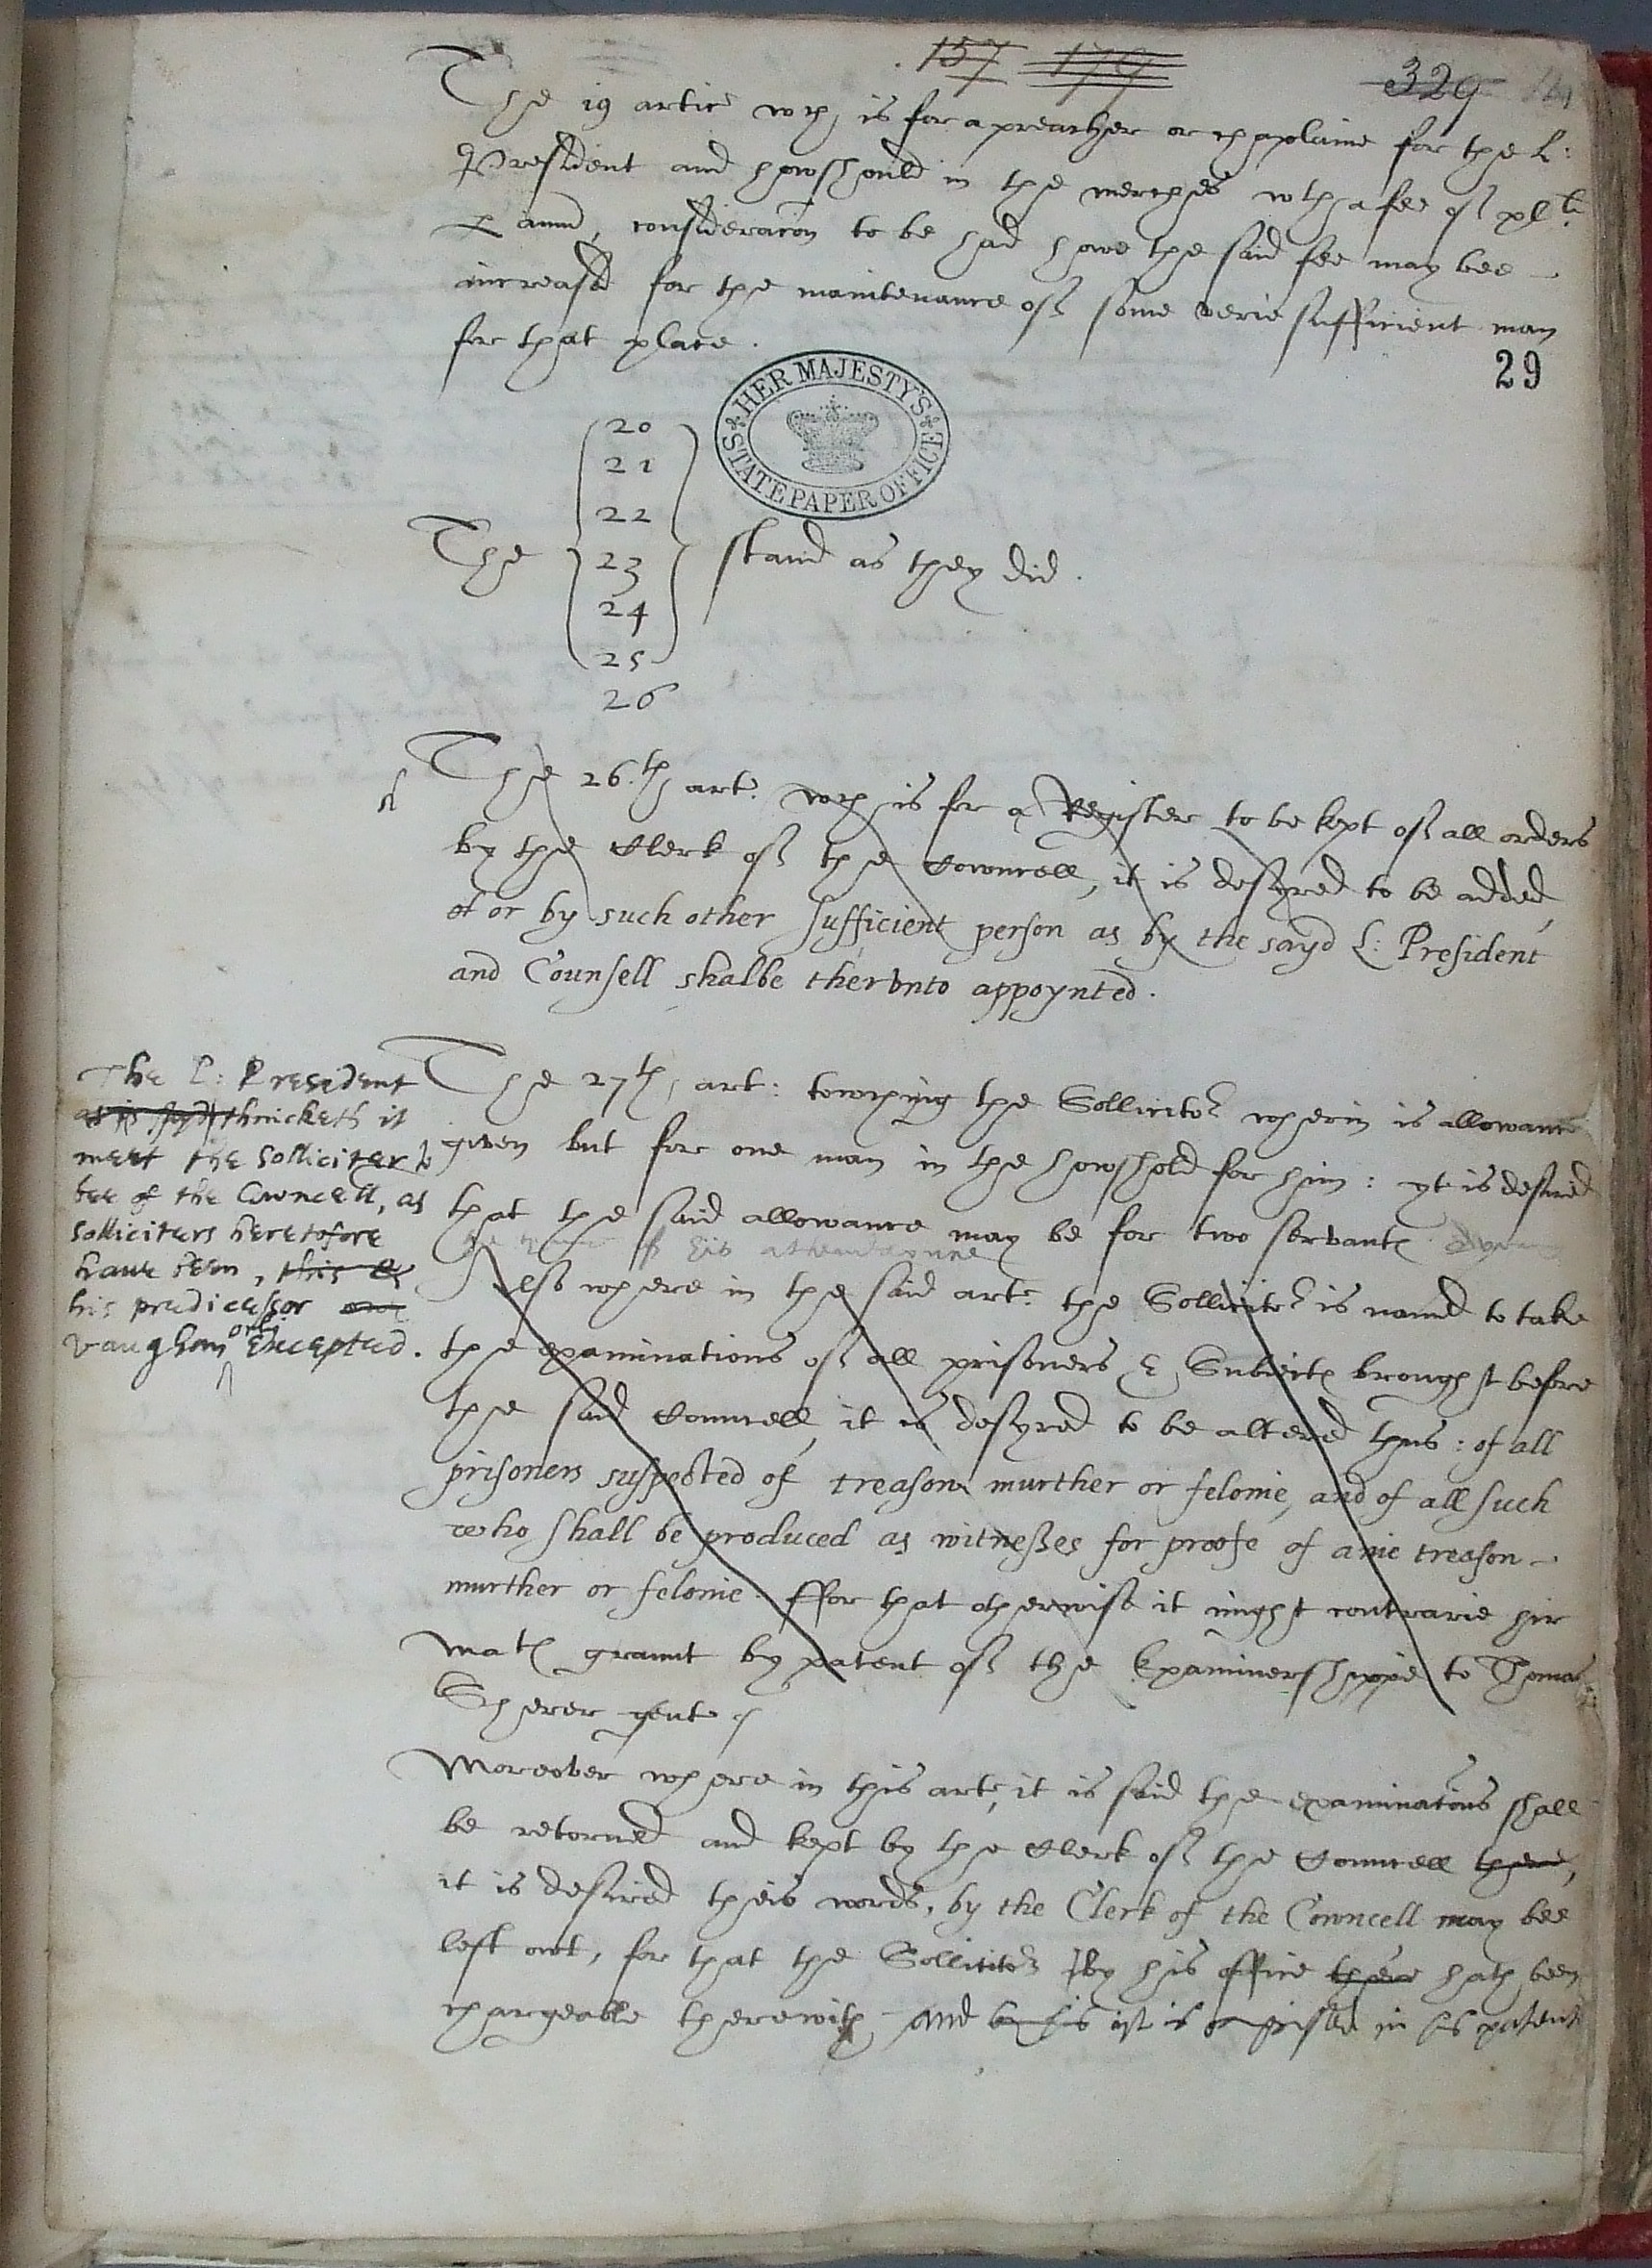 157 179 329
The 19 artic̃ wch is for a preacher or chaplaine for the L:
President and howshould in the merches wth a fee of xl li.
p annũ, consideracõn to be had howe the said fee may bee
increased for the maintenance of some verie sufficient man
for that place.
29
HER MAJESTY'S
STATE PAPER OFFICE
20
21
22
The 23 stand as they did.
24
25
26
The 26.th art. wch is for a Register to be kept of all orders
by the Clerk of the Cowncell, it is desyred to be added,
or by such other sufficient person as by the sayd L: President
and Counsell shalbe thervnto appoynted.
The L: President
as is sayd thincketh it
meet the Solliciter to
bee of the Cowncell, as
solliciters heretofore
haue been, this
his predicessor
vaughan only excepted.
The 27th, art: towching the Sollicitor wherin is allowance
given but for one man in the howshold for him: yt is desired
that the said allowance may be for two servants
his attendaunce
Also where in the said art. the Sollicitor is named to take
the examinations of all prisoners & Subiects brought before
the said Councell, it is desyred to be altered thus: of all
prisoners suspected of treason murther or felonie, and of all such
who shall be produced as witnesses for proofe of anie treason
murther or felonie. ffor that otherwise it might contrarie hir
mats graunt by patent of the Examinershippe to Thomas
Sherer gent.
Moreover where in this art. it is said the examinatõns shall
be retorned and kept by the Clerk of the Councell there,
it is desired theis words, by the Clerk of the Cowncell may bee
left out, for that the Sollicitor by his office there hath been
chargeable therewith, and is in his patent